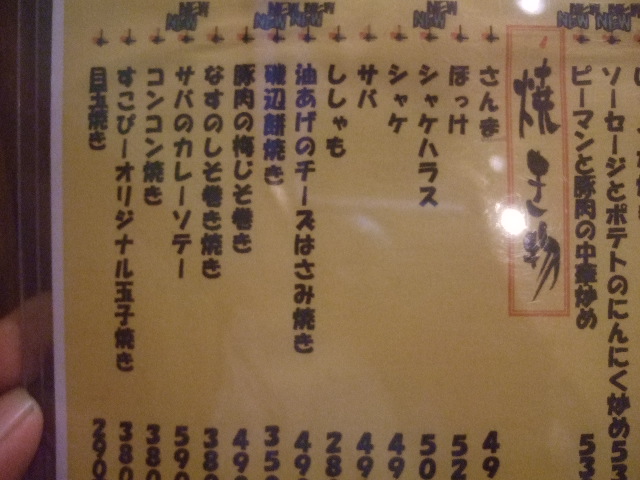 ソーセージとポテトのにんにく炒め 53
ピーマンと豚肉の中華炒め 53
焼き物
さんま 49
ほっけ 52
シャケハラス 50
シャケ 49
サバ 49
ししゃも 28
油あげのチーズはさみ焼き 49
磯辺餅焼き 35
豚肉の梅じそ巻き 49
なすのしそ巻き焼き 38
サバのカレーソテー 590
コンコン焼き 380
すこぴーオリジナル玉子焼き 380
目玉焼き 290
NEW
NEW
NEW
NEW
NEW
NEW